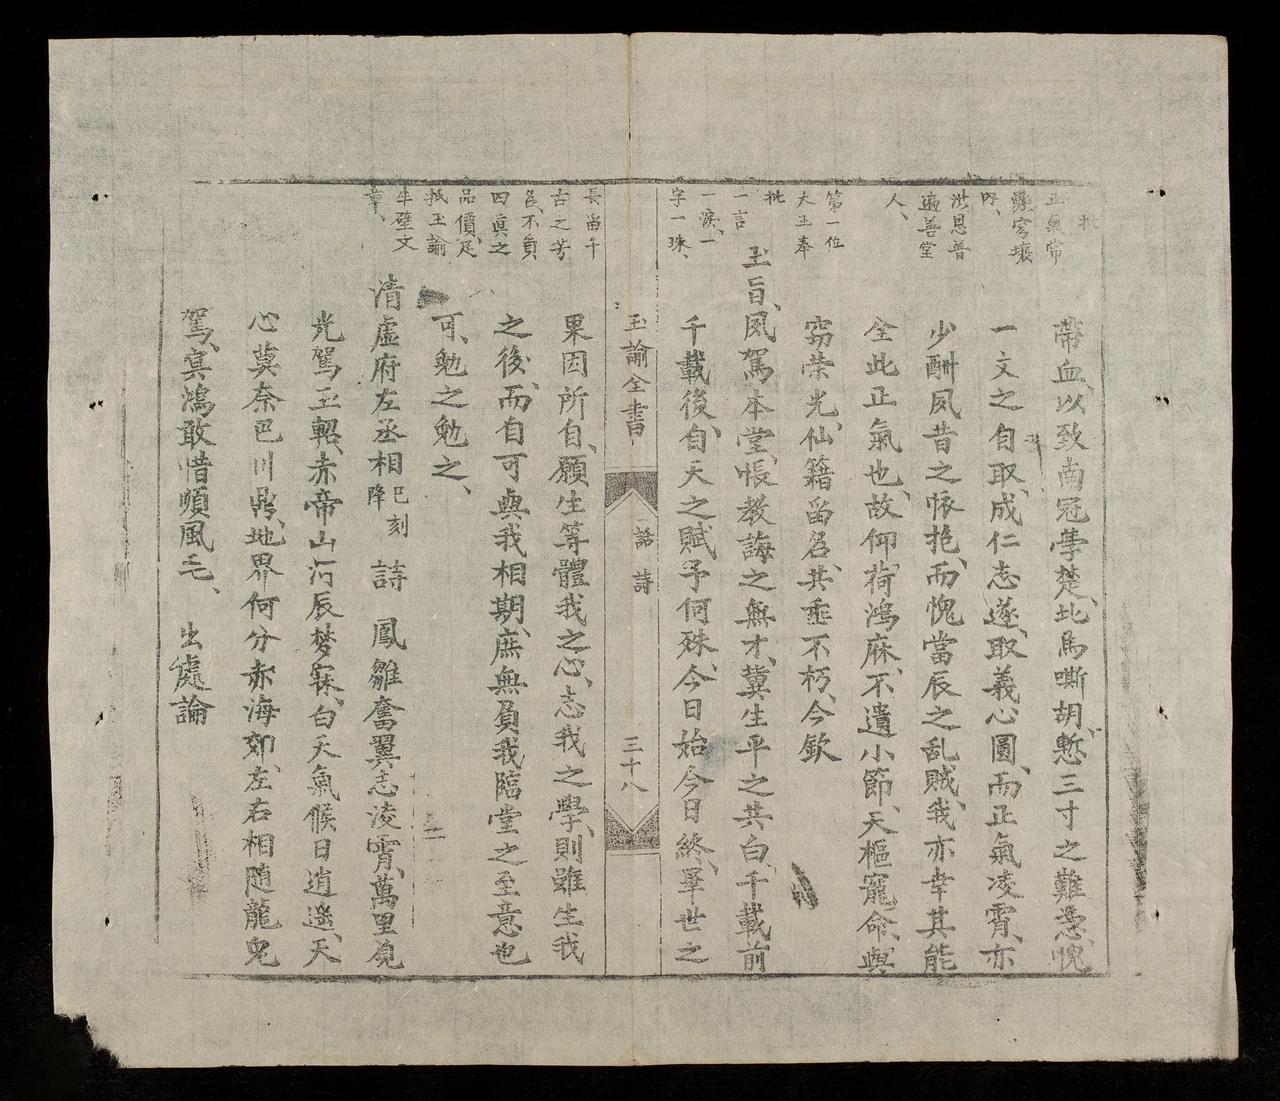 批
正氣常
洪恩普
遍善堂
人、
第一位
大王奉
批
一言
一淚、一
字一珠、
帶血、以致南冠學楚、北馬嘶胡、慙三寸之難憑、愧
一文之自取、成仁志遂、取義心圓、而正氣凌霄、亦
少酬夙昔之恢抱、而愧當辰之乱賊、我亦幸其能
全此正氣也、故仰荷鴻庥、不遺小節、天樞寵命、與
窃荣光、仙籍留名、共垂不朽、今欽
玉旨、夙駕本堂、悵教誨之無才、冀生平之共白、千載前
千載後、自天之賦予何殊、今日始今日終、畢世之
玉諭全書
誥 詩
三十八
長留千
古之芳
名、不負
四眞之
品價、足
抵玉諭
半璧文
章、
果因所自、願生等體我之心、志我之學、則雖生我
之後、而自可與我相期、庶無負我臨堂之至意也
可、勉之勉之、
清虛府左丞相巳刻降 詩 鳳雛奮翼志淩霄、萬里
光駕玉軺、赤帝山河辰梦寐、白天氣候日逍遥、天
心莫奈巴川鼎、地界何分赤海郊、左右相随龍
駕、寅鴻敢惜順風毛、 出處論